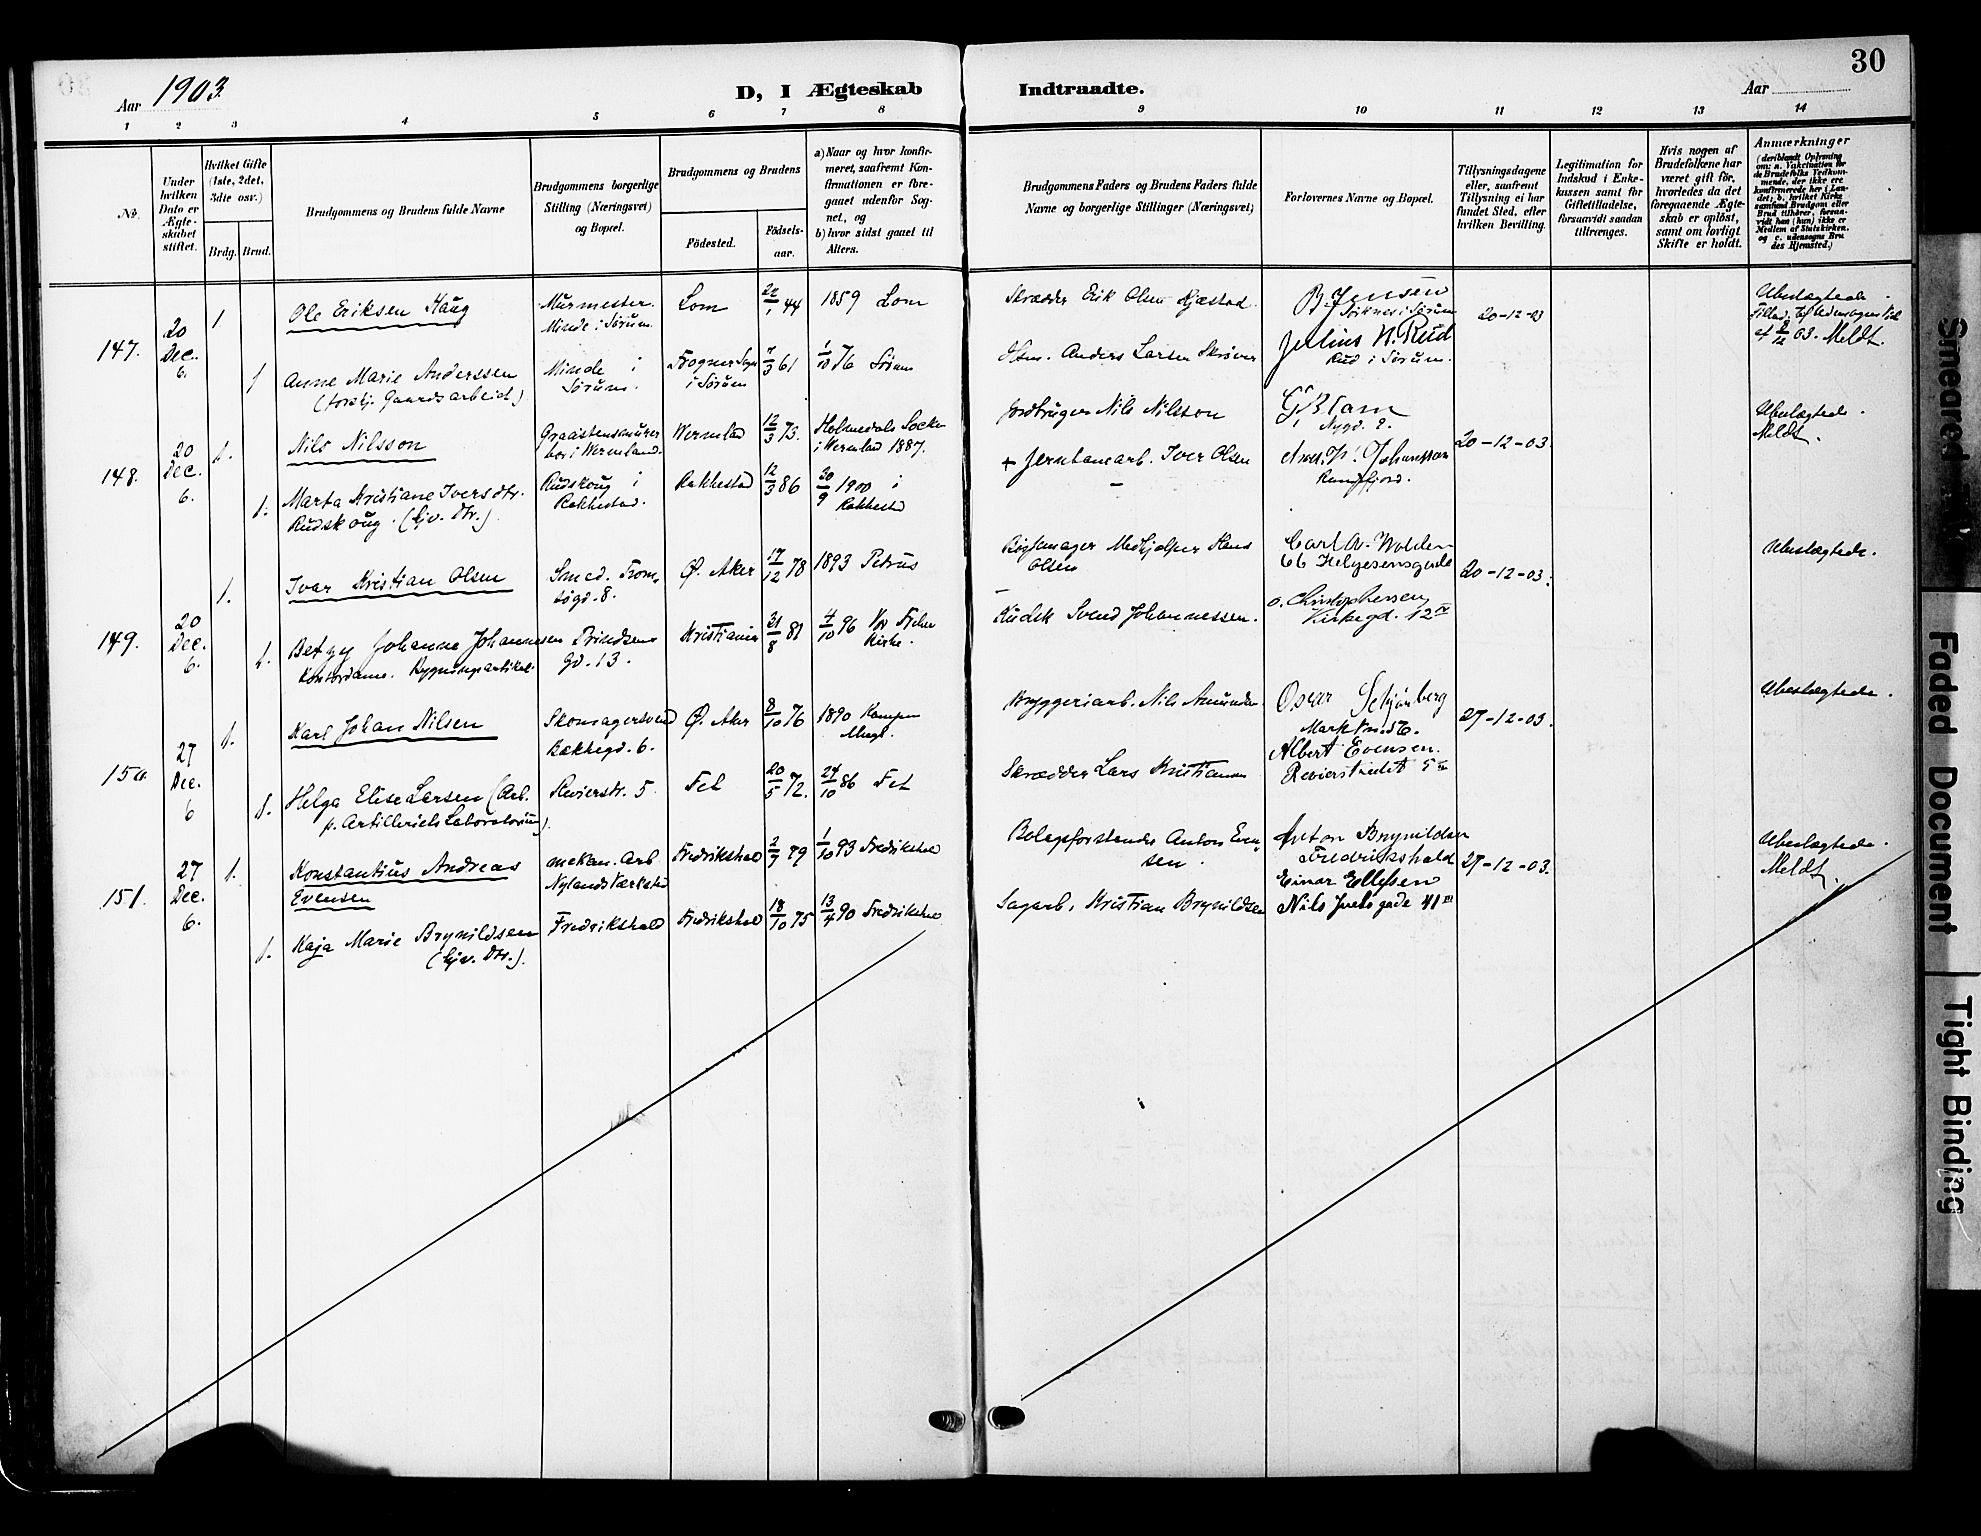 30
Aar 1903.
D, I Ægteskab Indtraadte.
Aar
1 2 3 4 5 6 7 8 9 10 11 12 13 14
No.
Under hvilken Dato er Ægteskabet stiftet.
Hvilket Gifte (1ste, 2det, 3die osv.)
Brdg. Brud.
Brudgommens og Brudens fulde Navne
Brudgommens borgerlige Stilling (Næringsvei) og Bopæl.
Brudgommens og Brudens
Födested.
Födselsaar.
a) Naar og hvor konfirmeret, saafremt Konfirmationen er foregaaet udenfor Sognet, og
b) hvor sidst gaaet til Alters.
Brudgommens Faders og Brudens Faders fulde Navne og borgerlige Stillinger (Næringsvei)
Forlovernes Navne og Bopæl.
Tillysningsdagene eller, saafremt Tillysning ei har fundet Sted, efter hvilken Bevilling.
Legitimation for Indskud i Enkekassen samt for Giftetilladelse, forsaavidt saadan tiltrænges.
Hvis nogen af Brudefolkene har været gift för, hvorledes da det foregaaende Ægteskab er oplöst, samt om lovligt Skifte er holdt.
Anmærkninger
(deriblandt Oplysning om: a. Vakcination for de Brudefolks Vedkommende, der ikke ere konfirmerede her i Landet; b. hvilket Kirkesamfund Brudgom eller Brud tilhörer, forsaavidt han (hun) ikke er Medlem af Statskirken, og c. udensogns Brudes Hjemsted.)
147. 20 Dec. 6.
1 Ole Eriksen Haug
Murmester. Minde i Sørum.
Lom 44 1859 Lom
Skrædder Erik Olsen
B. Jensen
20-12-03
Ubeslægtede.
03. Meldt.
1 Anne Marie Anderssen
(forskj. Gaardsarbeid)
Minde i Sørum.
Frogner Sogn i Sørum
7/3 61 1/10 76 Sørum
Anders Larsen
Julius N. Rud
Rud i Sørum.
148. 20 Dec. 6.
1. Nils Nilsson
Wermland
12/3 73.
i Wermland 1887.
Jordbruger Nils Nilsson
20-12-03.
Ubeslægtede.
Meldt.
1. Marta Kristiane Iversdtr.
Rudskoug. (hjv. Dtr.)
Rudskoug i Rakkestad.
Rakkestad
12/3 86
30/9 1900 i Rakkestad
+ Jernbanearb. Iver Olsen
149. 20 Dec. 6.
1. Ivar Kristian Olsen
Smed. Tromsøgd. 8.
Ø. Aker 17/12 78 1893 Petrus
Medhjelper Hans Olsen
66 Helgesensgade
20-12-03.
Ubeslægtede.
1. Betzy Johanne Johannesen
Prindsens Gd. 13.
Kristiania 31/8 81 4/10 96 Vor Frelsers Kirke.
Kudsk Svend Johannessen.
O. Christophersen
Kirkegd. 12 IV
150. 27 Dec. 6
1. Karl Johan Nilsen
Skomagersvend
Bakkegd. 6.
Ø. Aker 8/10 76 1890 Kampen
Bryggeriarb. Nils
Oscar Schjønberg
27-12-03.
Ubeslægtede.
1. Helga Elise Larsen (Arb.
p. Artilleriets Laboratorium).
Revierstr. 5
Fet 20/5 72. 24/10 86 Fet
Skrædder Lars Kristiansen
Albert Evensen.
Revierstrædet 5
151. 27 Dec. 6.
1. Konstantius Andreas
Evensen
mekan. Arb
Nylands Værksted
Fredrikshald 2/9 79 1/10 93 Fredrikshald
Anton Evensen.
Anton Brynildsen
Fredrikshald
27-12-03.
Ubeslægtede.
Meldt.
1. Kaja Marie Brynildsen
(hjv. Dtr.).
Fredrikshald
Fredrikshald 18/10 75 13/4 90 Fredrikshald
Sagarb. Kristian Brynildsen
Einar Ellefsen
Nils Juels gade 41 III
Smeared Ink
Faded Document
Tight Binding